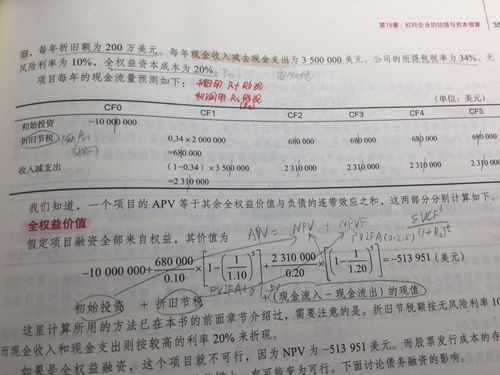 第18章 杠杆企业的估值与资本预算
旧，每年折旧额为 200 万美元。每年现金收入减去现金支出为 3 500 000 美元。公司的所得税税率为 34%。无
风险利率为 10%，全权益资本成本为 20%。
项目每年的现金流量预测如下：
(单位：美元)
CF0 CF1 CF2 CF3 CF4 CF5
初始投资 -10 000 000
折旧节税 0.34 × 2 000 000 680 000 680 000 680 000 680 000
=680 000
收入减支出 (1-0.34) × 3 500 000 2 310 000 2 310 000 2 310 000 2 310
=2 310 000
我们知道，一个项目的 APV 等于其全权益价值与负债的连带效应之和，这两部分分别计算如下。
全权益价值 APV = NPV + NPVF
假定项目融资全部来自权益，其价值为
-10 000 000+ 680 000/0.10 × [1-(1/1.10)^5] + 2 310 000/0.20 × [1-(1/1.20)^5] =-513 951（美元）
初始投资 + 折旧节税 + (现金流入-现金流出)的现值
这里计算所用的方法已在本书的前面章节介绍过，需要注意的是。折旧节税额按无风险利率 10
而现金收入和现金支出则按较高的利率 20% 来折现。
如果是全权益融资，这个项目就不可行，因为 NPV 为 -513 951 美元。而股票发行成本的存
有可能变为可行。下面讨论债务融资的影响。